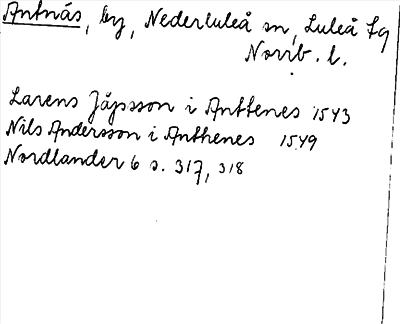 Antnäs, by, Nederluleå sn, Luleå tg
Norrb. l.
Larens Jäpsson i Anttenes 1543
Nils Andersson i Anthenes 1549
Nordlander 6 s. 317, 318